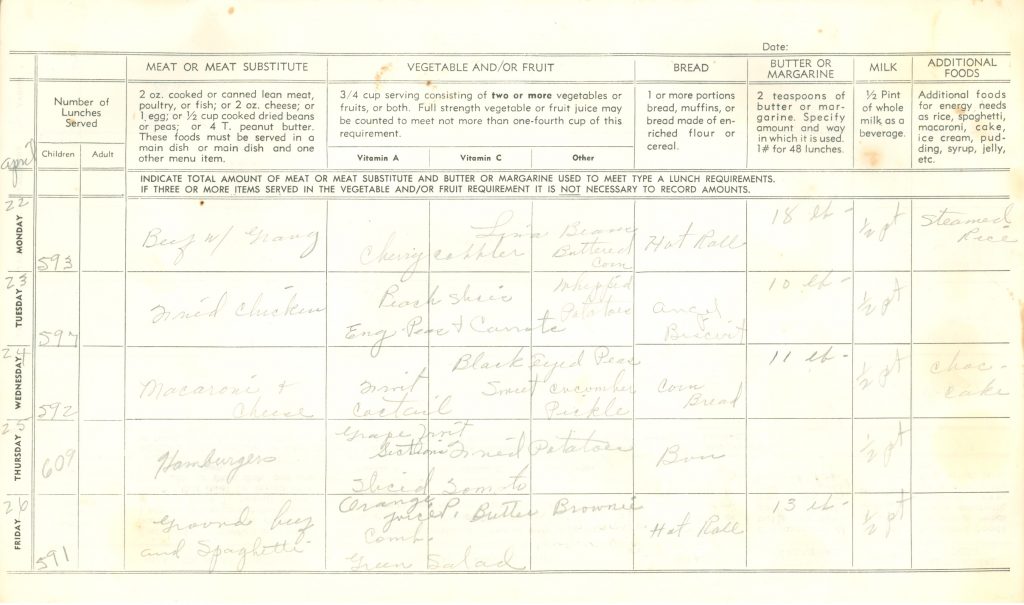 Date:
MEAT OR MEAT SUBSTITUTE
VEGETABLE AND/OR FRUIT
BREAD
BUTTER OR
MARGARINE
MILK
ADDITIONAL
FOODS
Number of
Lunches
Served
Children
Adult
2 oz. cooked or canned lean meat,
poultry, or fish; or 2 oz. cheese; or
1 egg; or ½ cup cooked dried beans
or peas; or 4 T. peanut butter.
These foods must be served in a
main dish or main dish and one
other menu item.
3/4 cup serving consisting of two or more vegetables or
fruits, or both. Full strength vegetable or fruit juice may
be counted to meet not more than one-fourth cup of this
requirement.
Vitamin A
Vitamin C
Other
1 or more portions
bread, muffins, or
bread made of en-
riched flour or
cereal.
2 teaspoons of
butter or mar-
garine. Specify
amount and way
in which it is used.
1# for 48 lunches.
½ Pint
of whole
milk as a
beverage.
Additional foods
for energy needs
as rice, spaghetti,
macaroni, cake,
ice cream, pud-
ding, syrup, jelly,
etc.
april
INDICATE TOTAL AMOUNT OF MEAT OR MEAT SUBSTITUTE AND BUTTER OR MARGARINE USED TO MEET TYPE A LUNCH REQUIREMENTS.
IF THREE OR MORE ITEMS SERVED IN THE VEGETABLE AND/OR FRUIT REQUIREMENT IT IS NOT NECESSARY TO RECORD AMOUNTS.
22
MONDAY
593
Beef w/ Gravy
Lima Beans
Cherry cobbler
Buttered
Corn
Hot Roll
18 lb -
½ pt
Steamed
Rice
23
TUESDAY
597
Fried Chicken
Peach Slice
Eng Peas & Carrots
Whipped
Potatoes
Angel
Biscuit
10 lb -
½ pt
24
WEDNESDAY
592
Macaroni &
Cheese
Fruit
Coctail
Black Eyed Peas
Sweet Cucumber
Pickle
Corn
Bread
11 lb -
½ pt
Choc -
cake
25
THURSDAY
609
Hamburgers
Grape Fruit
Sections
Fried Potatoes
Sliced Tomato
Bun
½ pt
26
FRIDAY
591
Ground beef
and Spaghetti
Orange
Juice
Comb.
P. Butter Brownie
Green Salad
Hot Roll
13 lb -
½ pt